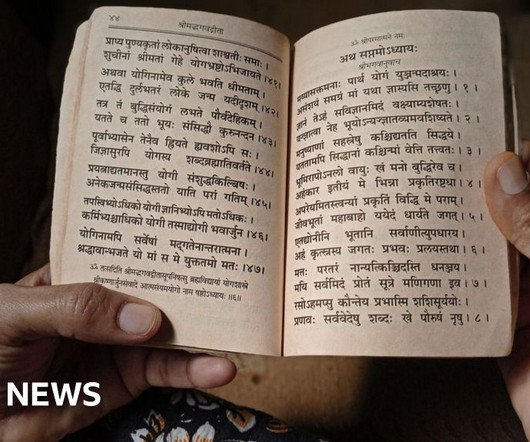 ४४
श्रीमद्भगवद्गीता
प्राप्य पुण्यकृतां लोकानुषित्वा शाश्वतीः समाः ।
शुचीनां श्रीमतां गेहे योगभ्रष्टोऽभिजायते ।४१।
अथवा योगिनामेव कुले भवति धीमताम् ।
एतद्धि दुर्लभतरं लोके जन्म यदीदृशम् ।४२।
तत्र तं बुद्धिसंयोगं लभते पौर्वदेहिकम् ।
यतते च ततो भूयः संसिद्धौ कुरुनन्दन ।४३।
पूर्वाभ्यासेन तेनैव ह्रियते ह्यवशोऽपि सः ।
जिज्ञासुरपि योगस्य शब्दब्रह्मातिवर्तते ।४४।
प्रयत्नाद्यतमानस्तु योगी संशुद्धकिल्बिषः ।
अनेकजन्मसंसिद्धस्ततो याति परां गतिम् ।४५।
तपस्विभ्योऽधिको योगी ज्ञानिभ्योऽपि मतोऽधिकः ।
कर्मिभ्यश्चाधिको योगी तस्माद्योगी भवार्जुन ।४६।
योगिनामपि सर्वेषां मद्गतेनान्तरात्मना ।
श्रद्धावान्भजते यो मां स मे युक्ततमो मतः ।४७।
ॐ तत्सदिति श्रीमद्भगवद्गीतासूपनिषत्सु ब्रह्मविद्यायां योगशास्त्रे
श्रीकृष्णार्जुनसंवादे आत्मसंयमयोगो नाम षष्ठोऽध्यायः ॥६॥
ॐ श्रीपरमात्मने नमः
अथ सप्तमोऽध्यायः
श्रीभगवानुवाच
मय्यासक्तमनाः पार्थ योगं युञ्जन्मदाश्रयः ।
असंशयं समग्रं मां यथा ज्ञास्यसि तच्छृणु । १ ।
ज्ञानं तेऽहं सविज्ञानमिदं वक्ष्याम्यशेषतः ।
यज्ज्ञात्वा नेह भूयोऽन्यज्ज्ञातव्यमवशिष्यते । २ ।
मनुष्याणां सहस्रेषु कश्चिद्यतति सिद्धये ।
यततामपि सिद्धानां कश्चिन्मां वेत्ति तत्त्वतः । ३ ।
भूमिरापोऽनलो वायुः खं मनो बुद्धिरेव च ।
अहंकार इतीयं मे भिन्ना प्रकृतिरष्टधा । ४ ।
अपरेयमितस्त्वन्यां प्रकृतिं विद्धि मे पराम् ।
जीवभूतां महाबाहो ययेदं धार्यते जगत् । ५ ।
एतद्योनीनि भूतानि सर्वाणीत्युपधारय ।
अहं कृत्स्नस्य जगतः प्रभवः प्रलयस्तथा । ६ ।
मत्तः परतरं नान्यत्किञ्चिदस्ति धनञ्जय ।
मयि सर्वमिदं प्रोतं सूत्रे मणिगणा इव । ७ ।
रसोऽहमप्सु कौन्तेय प्रभास्मि शशिसूर्ययोः ।
प्रणवः सर्ववेदेषु शब्दः खे पौरुषं नृषु । ८ ।
NEWS